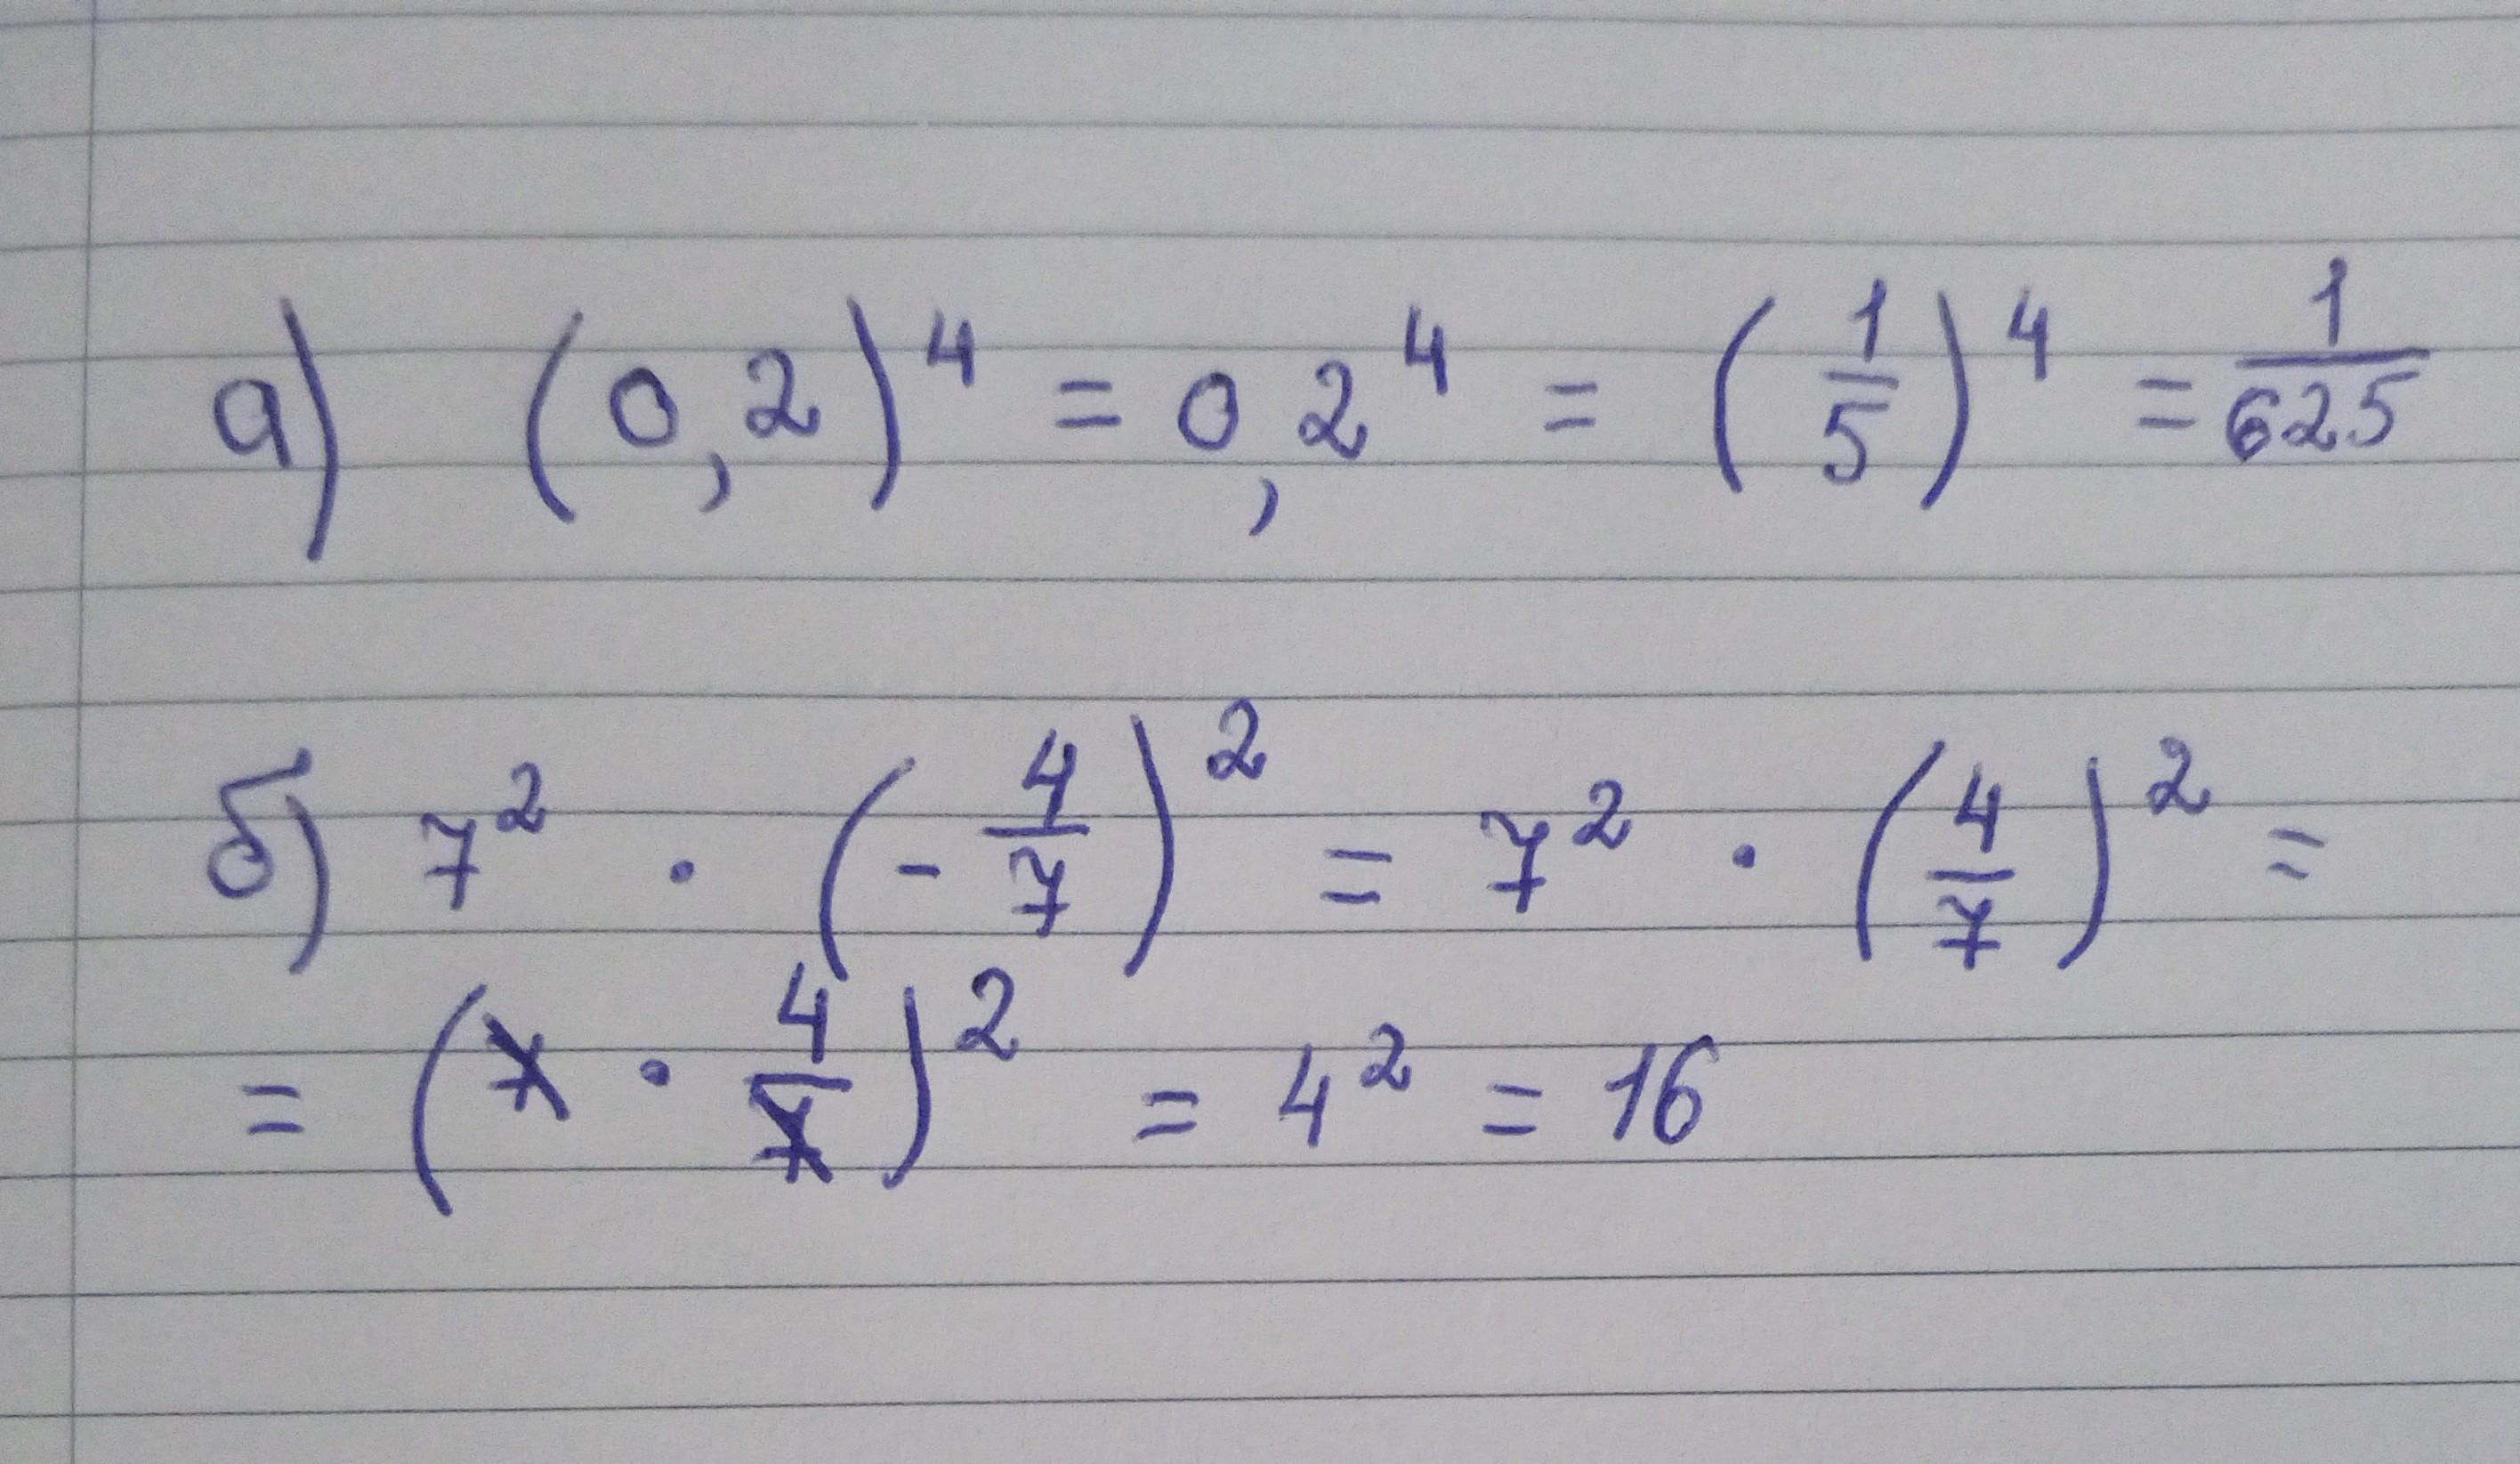 а) (0,2)⁴ = 0,2⁴ = (1/5)⁴ = 1/625
б) 7² · (-4/7)² = 7² · (4/7)² =
= (7 · 4/7)² = 4² = 16